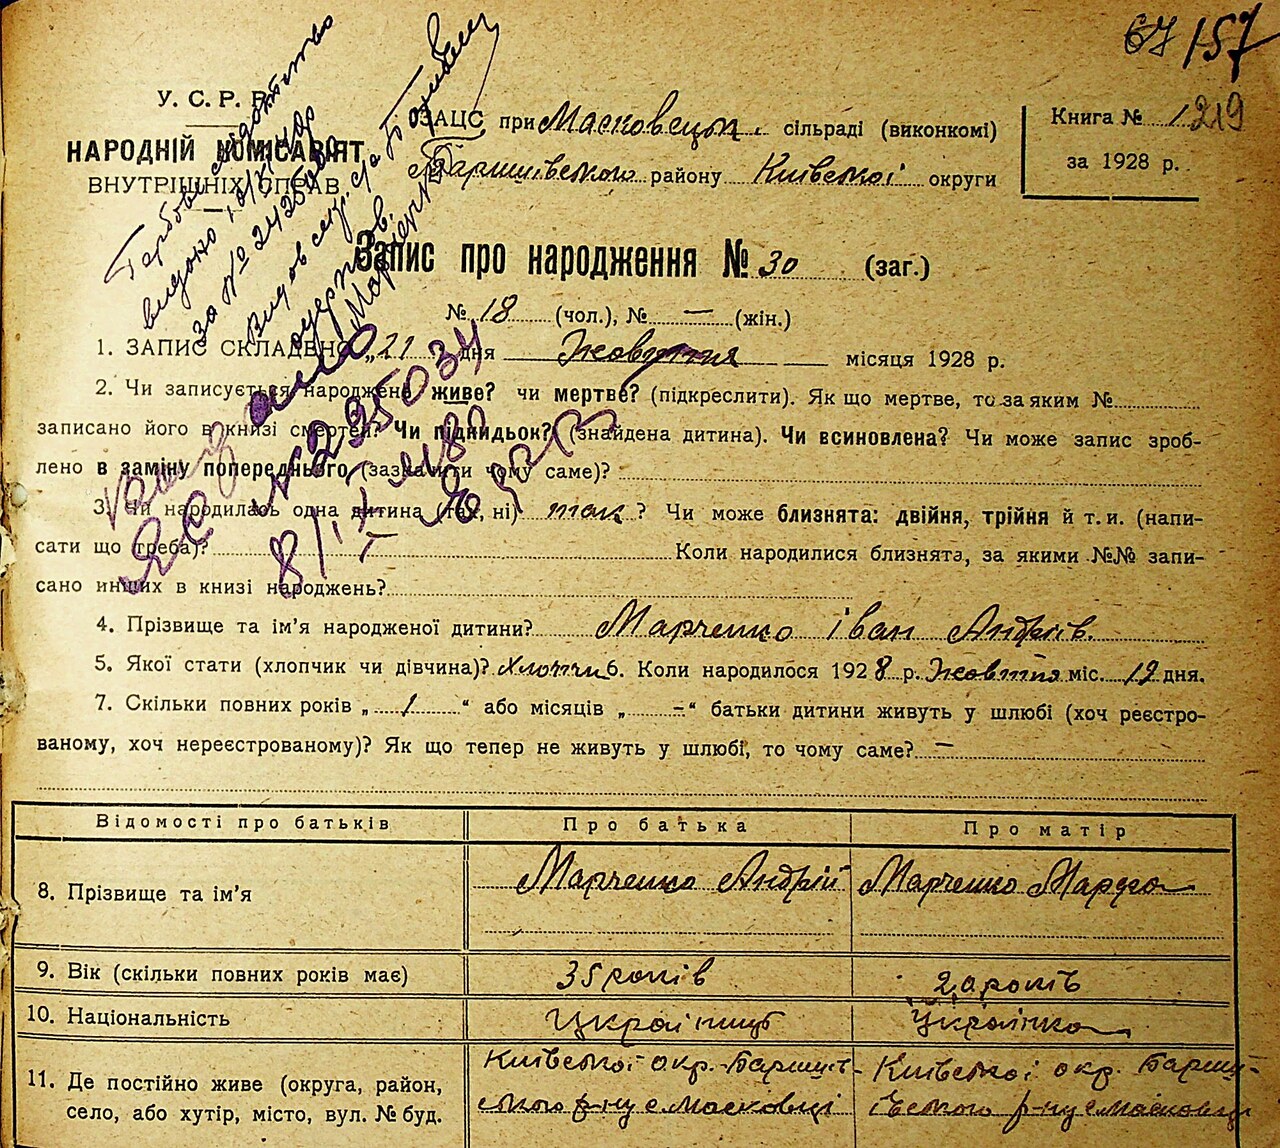 67 157
219
У. С. Р. Р.
НАРОДНІЙ КОМІСАРІЯТ
ВНУТРІШНІХ СПРАВ
ЗАЦС при Масковецьк. сільраді (виконкомі)
Баришівського району Київської округи
Книга № 1
за 1928 р.
видано
за №
Запис про народження № 30 (заг.)
№ 18 (чол.), № — (жін.)
1. ЗАПИС СКЛАДЕНО „21 дня Жовтня місяця 1928 р.
2. Чи записується народжене живе? чи мертве? (підкреслити). Як що мертве, то за яким №
записано його в книзі смертей? Чи підкидьок? (знайдена дитина). Чи всиновлена? Чи може запис зроб-
лено в заміну попереднього (зазначити чому саме)?
№ 235034
3. Чи народилась одна дитина (так, ні) так? Чи може близнята: двійня, трійня й т. и. (напи-
сати що треба)? Коли народилися близнята, за якими №№ запи-
сано инших в книзі народжень?
4. Прізвище та ім’я народженої дитини? Марченко Іван Андріїв.
5. Якої стати (хлопчик чи дівчина)? Хлопчи 6. Коли народилося 1928 р. Жовтня міс. 19 дня.
7. Скільки повних років „ 1 “ або місяців „ – “ батьки дитини живуть у шлюбі (хоч реєстро-
ваному, хоч нереєстрованому)? Як що тепер не живуть у шлюбі, то чому саме? –
Відомості про батьків Про батька Про матір
8. Прізвище та ім’я Марченко Андрій Марченко
9. Вік (скільки повних років має) 35 років років
10. Національність Українець Українка
11. Де постійно живе (округа, район, Київської окр. Баришів- Київської окр. Бариш-
село, або хутір, місто, вул. № буд. ського р-ну с Масковці івського р-ну с Масковці